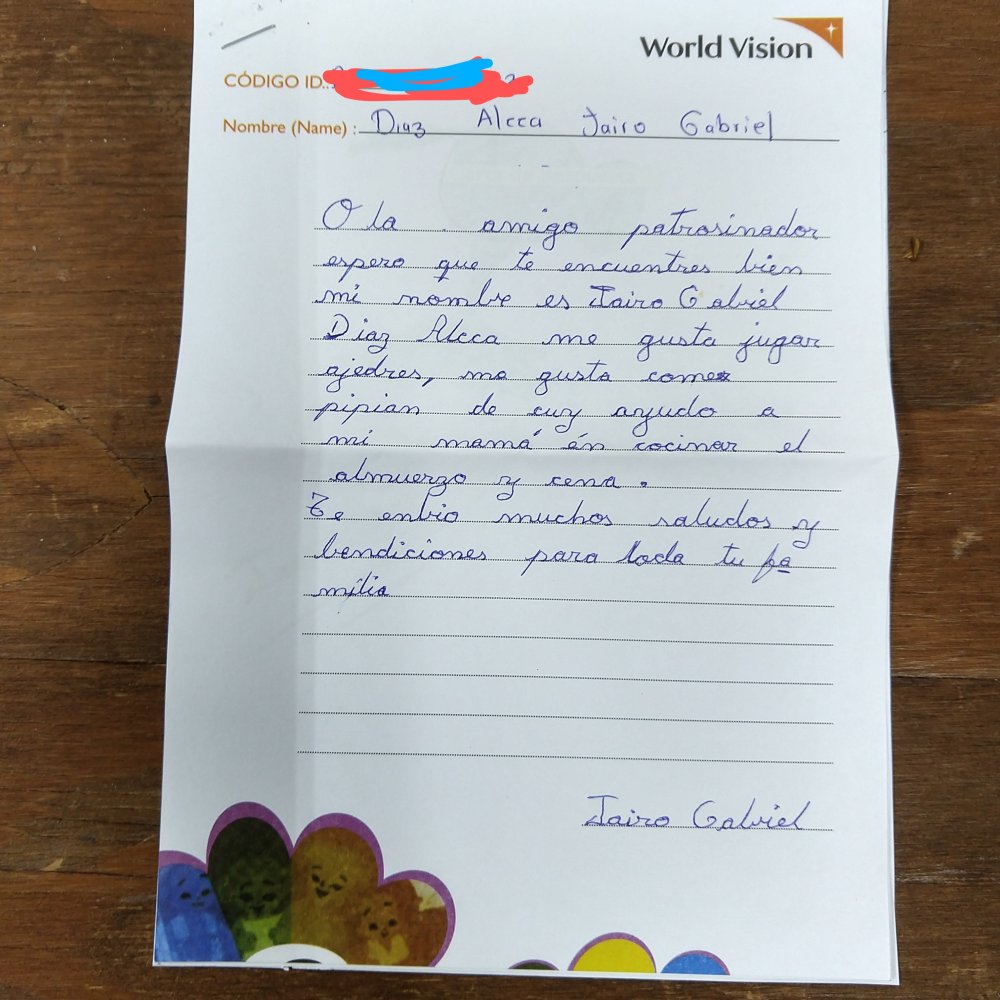 World Vision
CÓDIGO ID.:
Nombre (Name) : Diaz Alcca Jairo Gabriel
Ola amigo patrosinador
espero que te encuentres bien
mi nombre es Jairo Gabriel
Diaz Alcca me gusta jugar
ajedres, me gusta comer
pipian de cuy ayudo a
mi mamá én cocinar el
almuerzo y cena.
Te enbio muchos saludos y
bendiciones para toda tu fa
milia
Jairo Gabriel